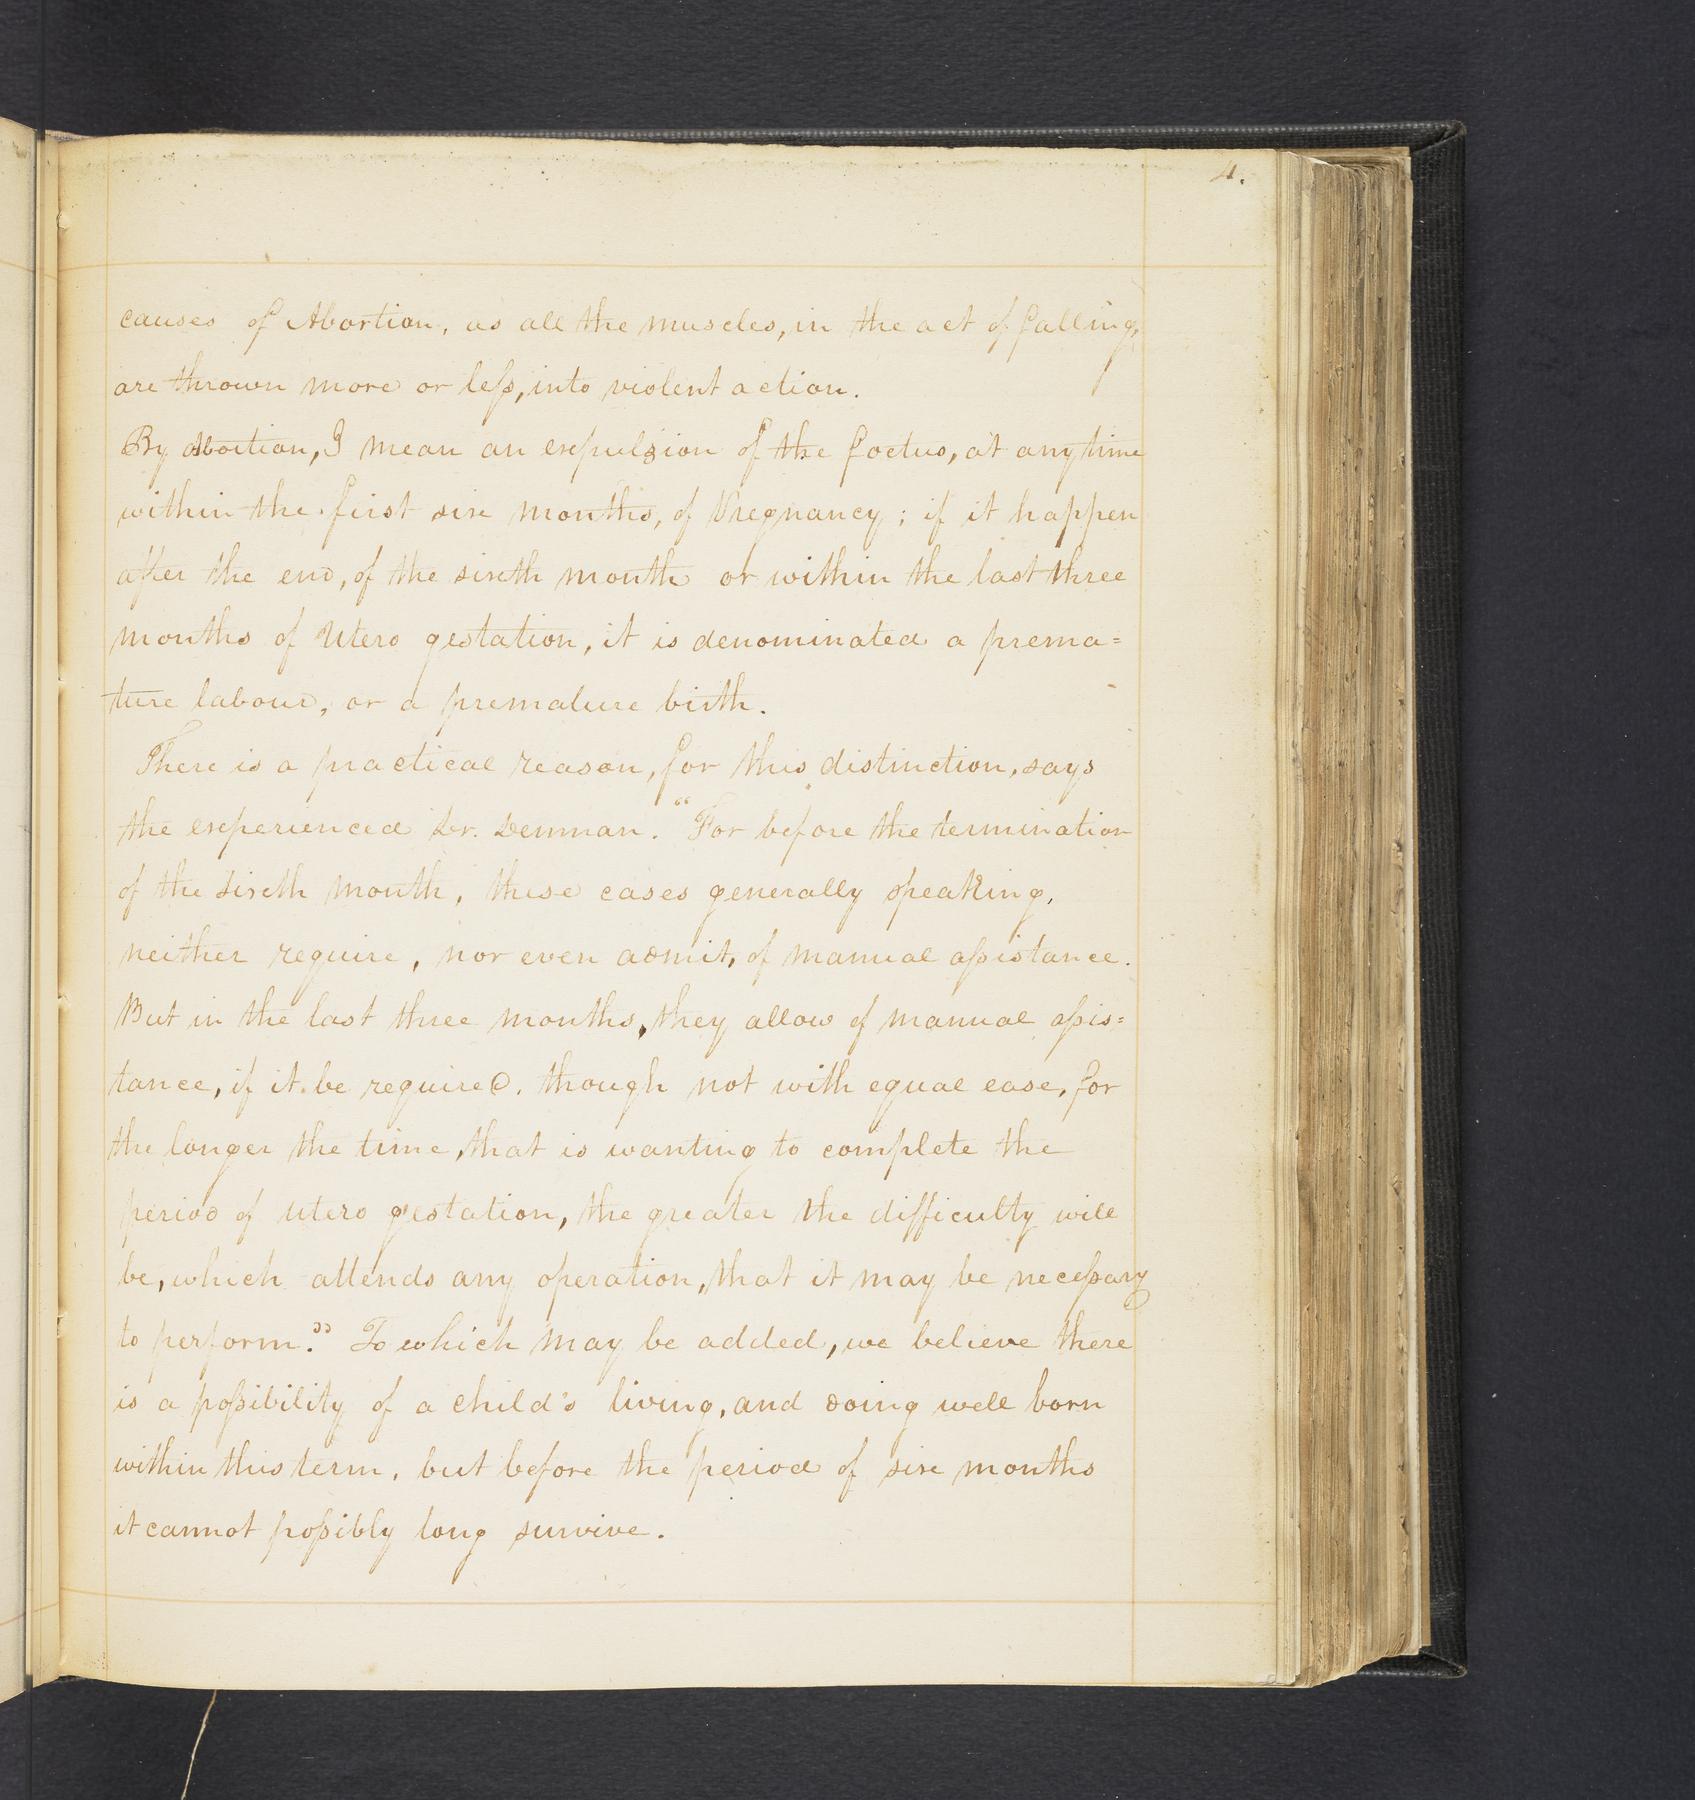 4.
causes of Abortion, as all the muscles, in the act of falling,
are thrown more or leſs, into violent action.
By Abortion, I mean an expulsion of the foetus, at any time
within the first six months, of Pregnancy; if it happen
after the end, of the sixth month or within the last three
months of Utero gestation, it is denominated a prema=
ture labour, or a premature birth.
There is a practical reason, for this distinction, says
the experienced Dr. Denman. "For before the termination
of the sixth month, these cases generally speaking,
neither require, nor even admit, of manual aſsistance.
But in the last three months, they allow of manual aſsis=
tance, if it be required, though not with equal ease, for
the longer the time, that is wanting to complete the
period of utero gestation, the greater the difficulty will
be, which attends any operation, that it may be neceſsary
to perform." To which may be added, we believe there
is a poſsibility of a child's living, and doing well born
within this term, but before the period of six months
it cannot poſsibly long survive.